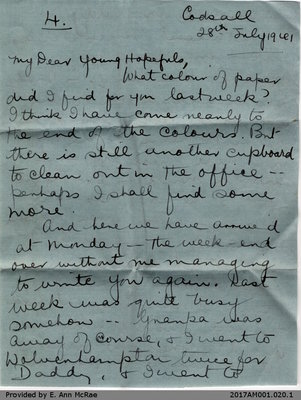 4.
Codsall
28th July 1941
My Dear Young Hopefuls,
What colour of paper
did I find for you last week?
I think I have come nearly to
the end of the colours. But
there is still another cupboard
to clean out in the office --
perhaps I shall find some
more.
And here we have arrived
at Monday - the week-end
over without me managing
to write you again. Last
week was quite busy
somehow -- Granpa was
away of course, & I went to
Wolverhampton twice for
Daddy, & I went to
Provided by E. Ann McRae
2017AM001.020.1